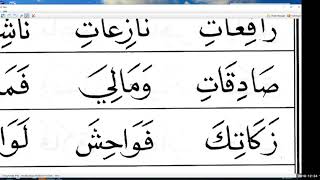 رَافِعَاتِ نَازِعَاتِ
صَادِقَاتِ وَمَالِيَ
زَكَاتِكَ فَوَاحِشَ